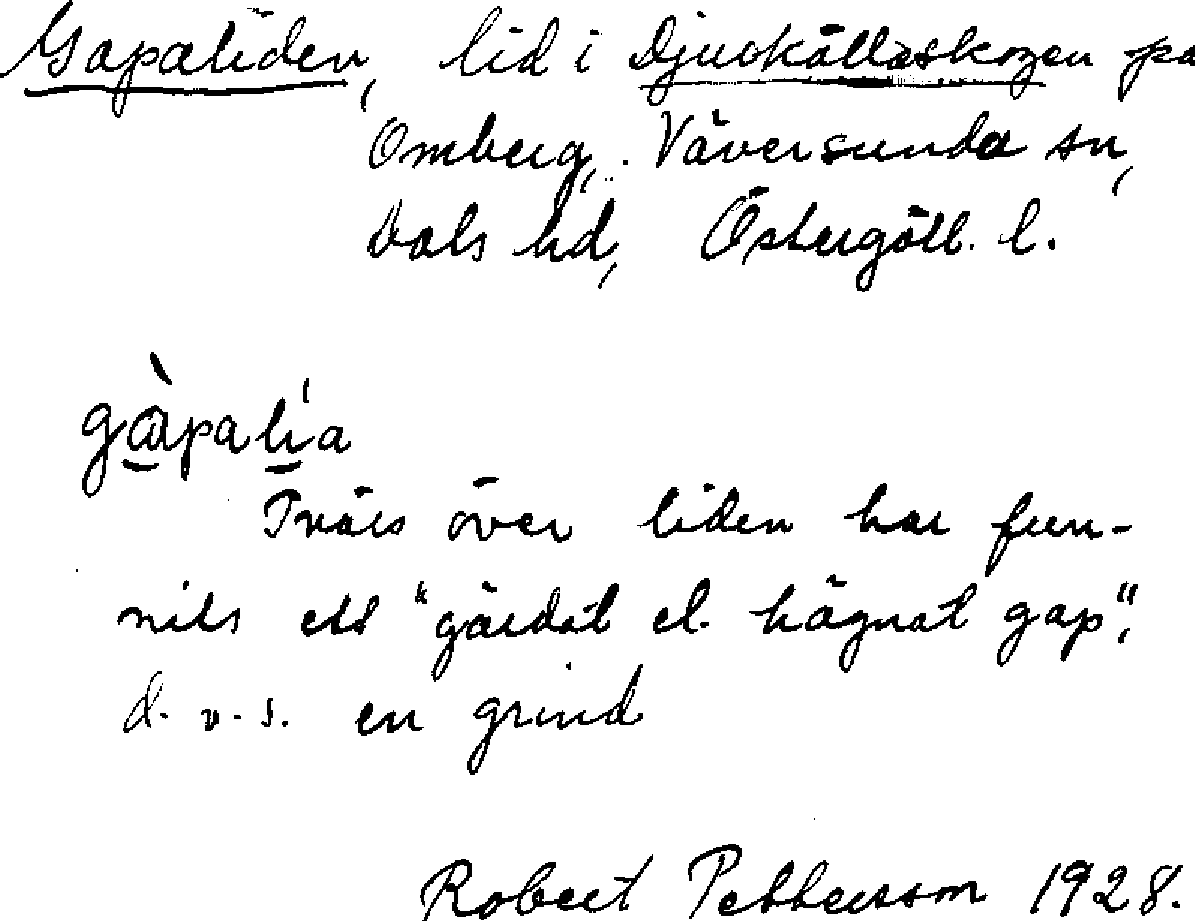 Gapaliden, lid i Djurkällaskogen på
Omberg, Väversunda sn,
Dals hd, Östergötl. l.
gàpalía
Tvärs över liden har fun-
nits ett "gärdat el. hägnat gap",
d. v. s. en grind
Robert Pettersson 1928.